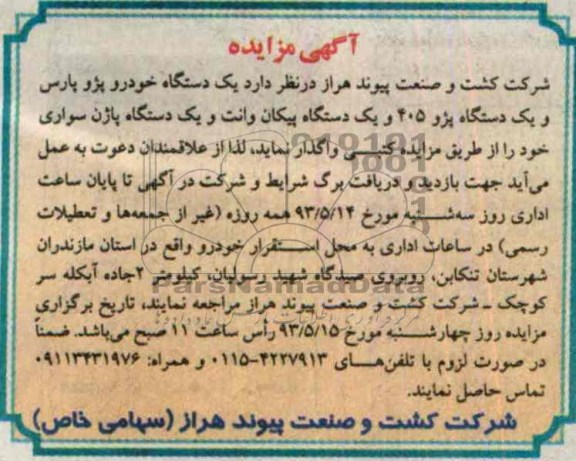 آگهی مزایده
شرکت کشت و صنعت پیوند هراز درنظر دارد یک دستگاه خودرو پژو پارس
و یک دستگاه پژو ۴۰۵ و یک دستگاه پیکان وانت و یک دستگاه پاژن سواری
خود را از طریق مزایده کتبی واگذار نماید، لذا از علاقمندان دعوت به عمل
می‌آید جهت بازدید و دریافت برگ شرایط و شرکت در آگهی تا پایان ساعت
اداری روز سه‌شنبه مورخ ۹۳/۵/۱۴ همه روزه (غیر از جمعه‌ها و تعطیلات
رسمی) در ساعات اداری به محل استقرار خودرو واقع در استان مازندران
شهرستان تنکابن، روبروی صیدگاه شهید رسولیان، کیلومتر ۲جاده آبکله سر
ParsNamadData
کوچک ـ شرکت کشت و صنعت پیوند هراز مراجعه نمایند، تاریخ برگزاری
مزایده روز چهارشنبه مورخ ۹۳/۵/۱۵ رأس ساعت ۱۱ صبح می‌باشد. ضمناً
در صورت لزوم با تلفن‌های ۴۲۲۷۹۱۳-۰۱۱۵ و همراه: ۰۹۱۱۳۴۳۱۹۷۶
تماس حاصل نمایند.
شرکت کشت و صنعت پیوند هراز (سهامی خاص)